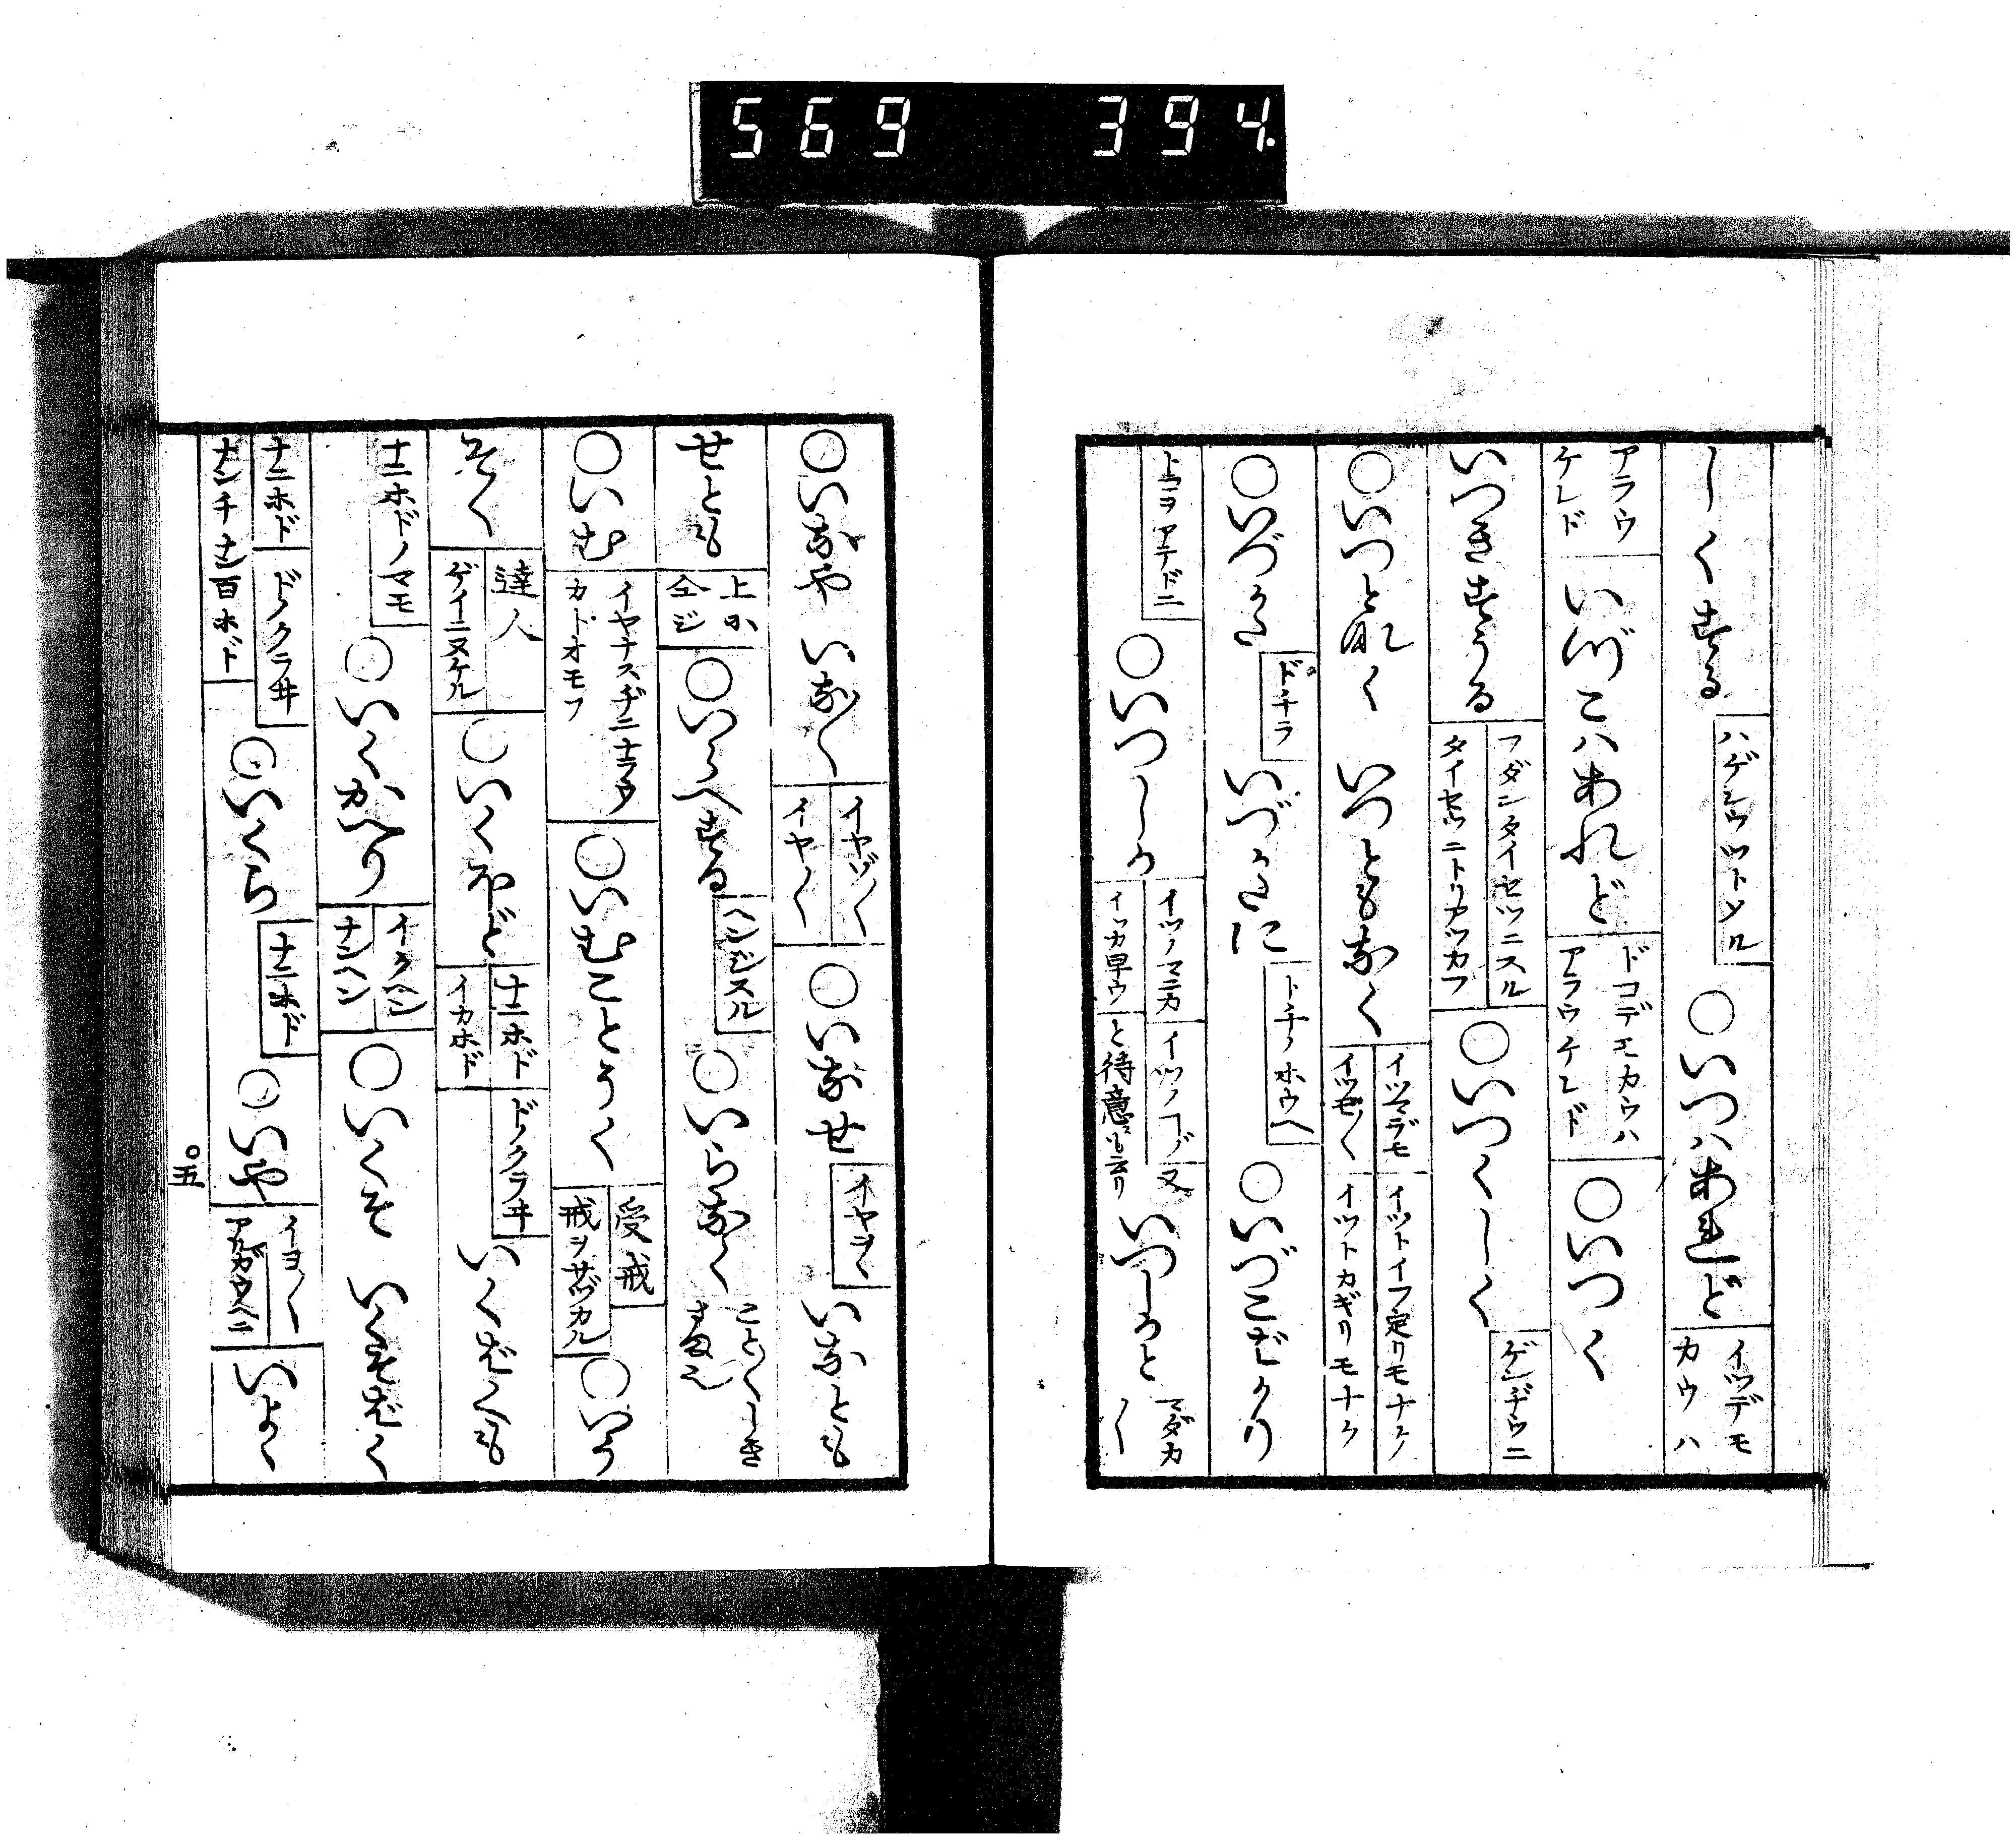 569 394.
しくする ハゲシウツトメル ○いつハあれど イツデモカウハ
アラウケレド いづこハあれど ドコデモカウハアラウケレド ○いつく
いつきすうる フダンタイセツニスル タイセツニトリアツカフ ○いつくしく ゲンヂウニ
○いつとなく いつともなく イツマデモ イツモ〳〵 イツトイフ定リモナク イツトカギリモナク
○いづかた ドチラ いづかたに ドチノホウヘ ○いづこばかり
トコヲアテドニ ○いつしか イツノマニカ イツカ早ウ イツノコヅ又 と待意 いつしかと マダカ〳〵
○いなや いな〳〵 イヤヅ〳〵 イヤ〳〵 ○いなせ イヤヲヽ いなとも
せとも 上ニ仝ジ ○いらへする ヘンジスル ○いらなく こと〳〵しき
○いむ イヤナスヂニナラウカトオモフ ○いむことうく 受戒 戒ヲサヅカル ○いう
そく 達人 ゲイニヌケル ○いくほど ナニホド イカホド ドノクラヰ いくばくも
ナニホドノマモ ○いくかへり イクヘン ナンヘン ○いくそ いくそばく
ナニホド ドノクラヰ ナンチナン百ホド ○いくら ナニホド ○いや イヨ〳〵 アルガウヘニ いよゝ
五